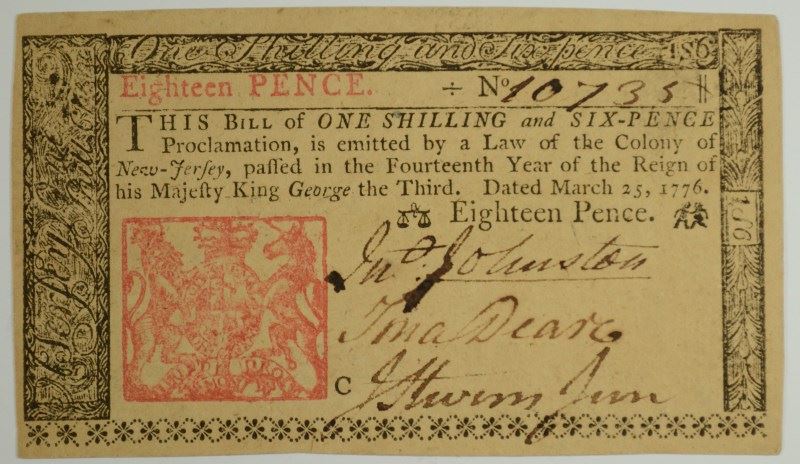 One Shilling and Six-pence 1s6
Eighteen PENCE. ÷ No 10735
THIS BILL of ONE SHILLING and SIX-PENCE
Proclamation, is emitted by a Law of the Colony of
New-Jerſey, paſſed in the Fourteenth Year of the Reign of
his Majeſty King George the Third. Dated March 25, 1776.
Eighteen Pence.
Jno. Johnston
Jona Deare
C